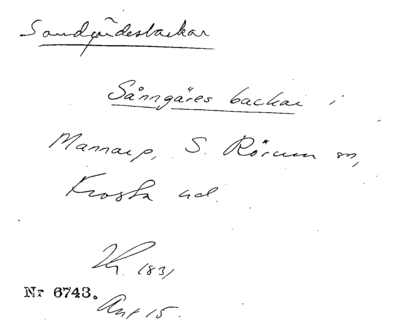 Sandgärdesbackar
Sånngäres backar i
Mannarp, S. Rörum sn,
Frosta hd.
1831
Nr 6743.
Ant 15.